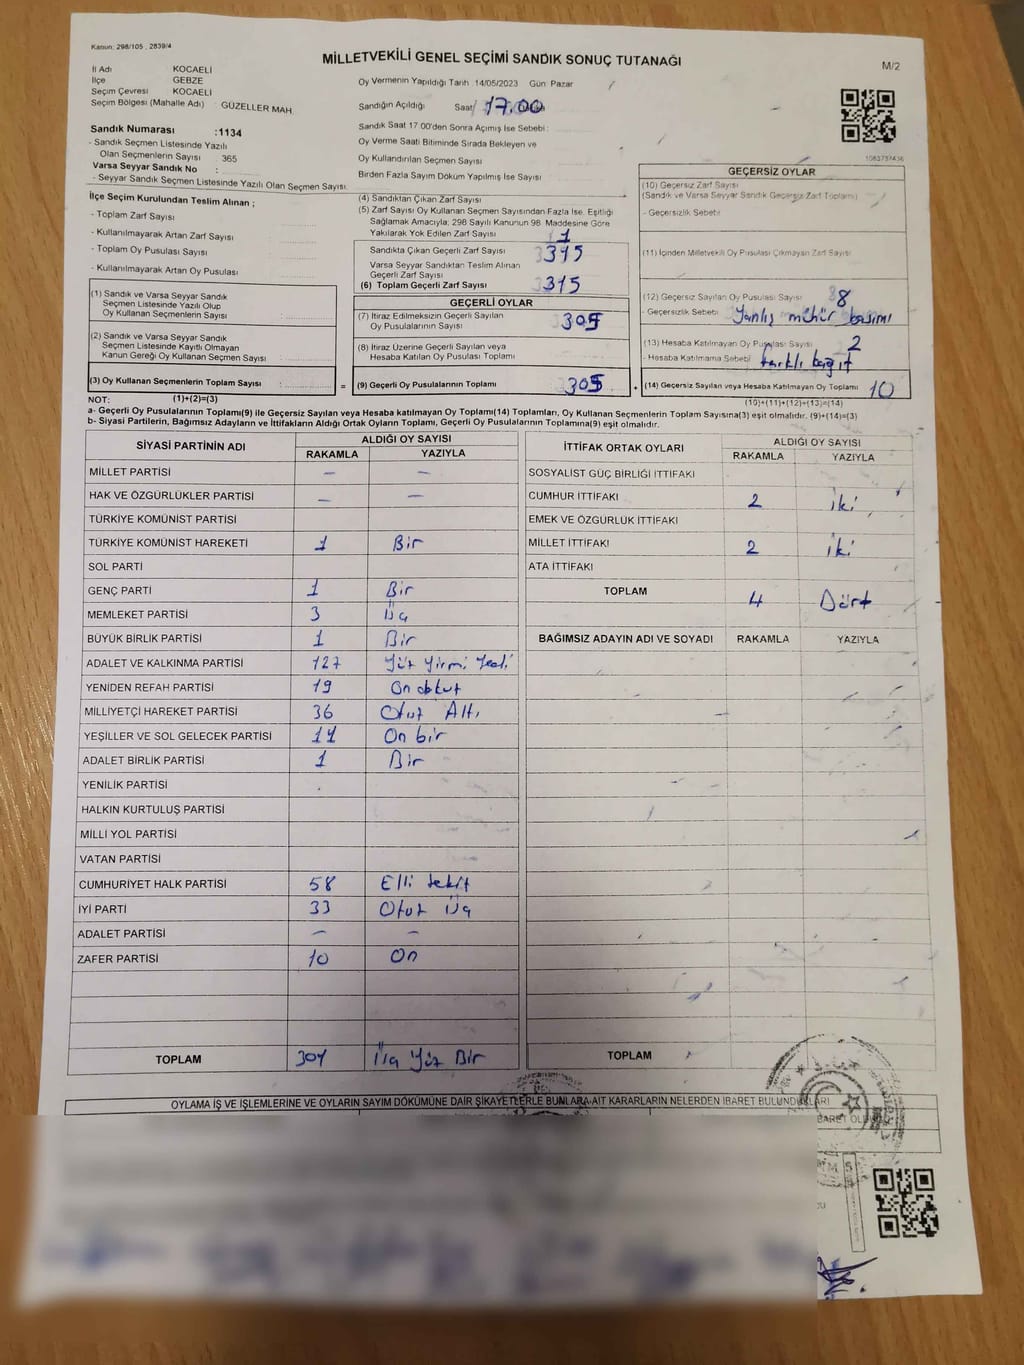 Kanun: 298/105 , 2839/4
MİLLETVEKİLİ GENEL SEÇİMİ SANDIK SONUÇ TUTANAĞI
M/2
İl Adı KOCAELİ
İlçe GEBZE
Seçim Çevresi KOCAELİ
Seçim Bölgesi (Mahalle Adı) : GÜZELLER MAH.
Sandık Numarası :1134
- Sandık Seçmen Listesinde Yazılı
Olan Seçmenlerin Sayısı : 365
Varsa Seyyar Sandık No :
- Seyyar Sandık Seçmen Listesinde Yazılı Olan Seçmen Sayısı:
Oy Vermenin Yapıldığı Tarih 14/05/2023 Gün Pazar
Sandığın Açıldığı Saat 17.00
Sandık Saat 17 00'den Sonra Açımış Ise Sebebi :
Oy Verme Saati Bitiminde Sırada Bekleyen ve
Oy Kullandırılan Seçmen Sayısı
Birden Fazla Sayım Döküm Yapılmış İse Sayısı
1083757436
İlçe Seçim Kurulundan Teslim Alınan ;
- Toplam Zarf Sayısı
- Kullanılmayarak Artan Zarf Sayısı
- Toplam Oy Pusulası Sayısı
- Kullanılmayarak Artan Oy Pusulası
(1) Sandık ve Varsa Seyyar Sandık
Seçmen Listesinde Yazılı Olup
Oy Kullanan Seçmenlerin Sayısı :
(2) Sandık ve Varsa Seyyar Sandık
Seçmen Listesinde Kayıtlı Olmayan
Kanun Gereği Oy Kullanan Seçmen Sayısı :
(3) Oy Kullanan Seçmenlerin Toplam Sayısı :
=
(4) Sandıktan Çıkan Zarf Sayısı
(5) Zarf Sayısı Oy Kullanan Seçmen Sayısından Fazla İse, Eşitliği
Sağlamak Amacıyla; 298 Sayılı Kanunun 98. Maddesine Göre
Yakılarak Yok Edilen Zarf Sayısı 1
Sandıkta Çıkan Geçerli Zarf Sayısı 315
Varsa Seyyar Sandıktan Teslim Alınan
Geçerli Zarf Sayısı
(6) Toplam Geçerli Zarf Sayısı 315
GEÇERLİ OYLAR
(7) İtiraz Edilmeksizin Geçerli Sayılan
Oy Pusulalarının Sayısı 305
(8) İtiraz Üzerine Geçerli Sayılan veya
Hesaba Katılan Oy Pusulası Toplamı
(9) Geçerli Oy Pusulalarının Toplamı 305
+
GEÇERSİZ OYLAR
(10) Geçersiz Zarf Sayısı
(Sandık ve Varsa Seyyar Sandık Geçersiz Zarf Toplamı)
- Geçersizlik Sebebi
(11) İçinden Milletvekili Oy Pusulası Çıkmayan Zarf Sayısı
(12) Geçersiz Sayılan Oy Pusulası Sayısı 8
- Geçersizlik Sebebi Yanlış mühür basımı
(13) Hesaba Katılmayan Oy Pusulası Sayısı 2
- Hesaba Katılmama Sebebi farklı kağıt
(14) Geçersiz Sayılan veya Hesaba Katılmayan Oy Toplamı 10
NOT: (1)+(2)=(3)
(10)+(11)+(12)+(13)=(14)
a- Geçerli Oy Pusulalarının Toplamı(9) ile Geçersiz Sayılan veya Hesaba katılmayan Oy Toplamı(14) Toplamları, Oy Kullanan Seçmenlerin Toplam Sayısına(3) eşit olmalıdır. (9)+(14)=(3)
b- Siyasi Partilerin, Bağımsız Adayların ve İttifakların Aldığı Ortak Oyların Toplamı, Geçerli Oy Pusulalarının Toplamına(9) eşit olmalıdır.
SİYASİ PARTİNİN ADI ALDIĞI OY SAYISI
RAKAMLA YAZIYLA
MİLLET PARTİSİ – –
HAK VE ÖZGÜRLÜKLER PARTİSİ – –
TÜRKİYE KOMÜNİST PARTİSİ
TÜRKİYE KOMÜNİST HAREKETİ 1 Bir
SOL PARTİ
GENÇ PARTİ 1 Bir
MEMLEKET PARTİSİ 3 Üç
BÜYÜK BİRLİK PARTİSİ 1 Bir
ADALET VE KALKINMA PARTİSİ 127 Yüz Yirmi Yedi
YENİDEN REFAH PARTİSİ 19 On dokuz
MİLLİYETÇİ HAREKET PARTİSİ 36 Otuz Altı
YEŞİLLER VE SOL GELECEK PARTİSİ 11 On bir
ADALET BİRLİK PARTİSİ 1 Bir
YENİLİK PARTİSİ
HALKIN KURTULUŞ PARTİSİ
MİLLİ YOL PARTİSİ
VATAN PARTİSİ
CUMHURİYET HALK PARTİSİ 58 Elli sekiz
İYİ PARTİ 33 Otuz üç
ADALET PARTİSİ – –
ZAFER PARTİSİ 10 On
TOPLAM 301 Üç Yüz Bir
İTTİFAK ORTAK OYLARI ALDIĞI OY SAYISI
RAKAMLA YAZIYLA
SOSYALİST GÜÇ BİRLİĞİ İTTİFAKI
CUMHUR İTTİFAKI 2 iki
EMEK VE ÖZGÜRLÜK İTTİFAKI
MİLLET İTTİFAKI 2 iki
ATA İTTİFAKI
TOPLAM 4 Dört
BAĞIMSIZ ADAYIN ADI VE SOYADI RAKAMLA YAZIYLA
TOPLAM
OYLAMA İŞ VE İŞLEMLERİNE VE OYLARIN SAYIM DÖKÜMÜNE DAİR ŞİKAYETLERLE BUNLARA AİT KARARLARIN NELERDEN İBARET BULUNDUKLARI